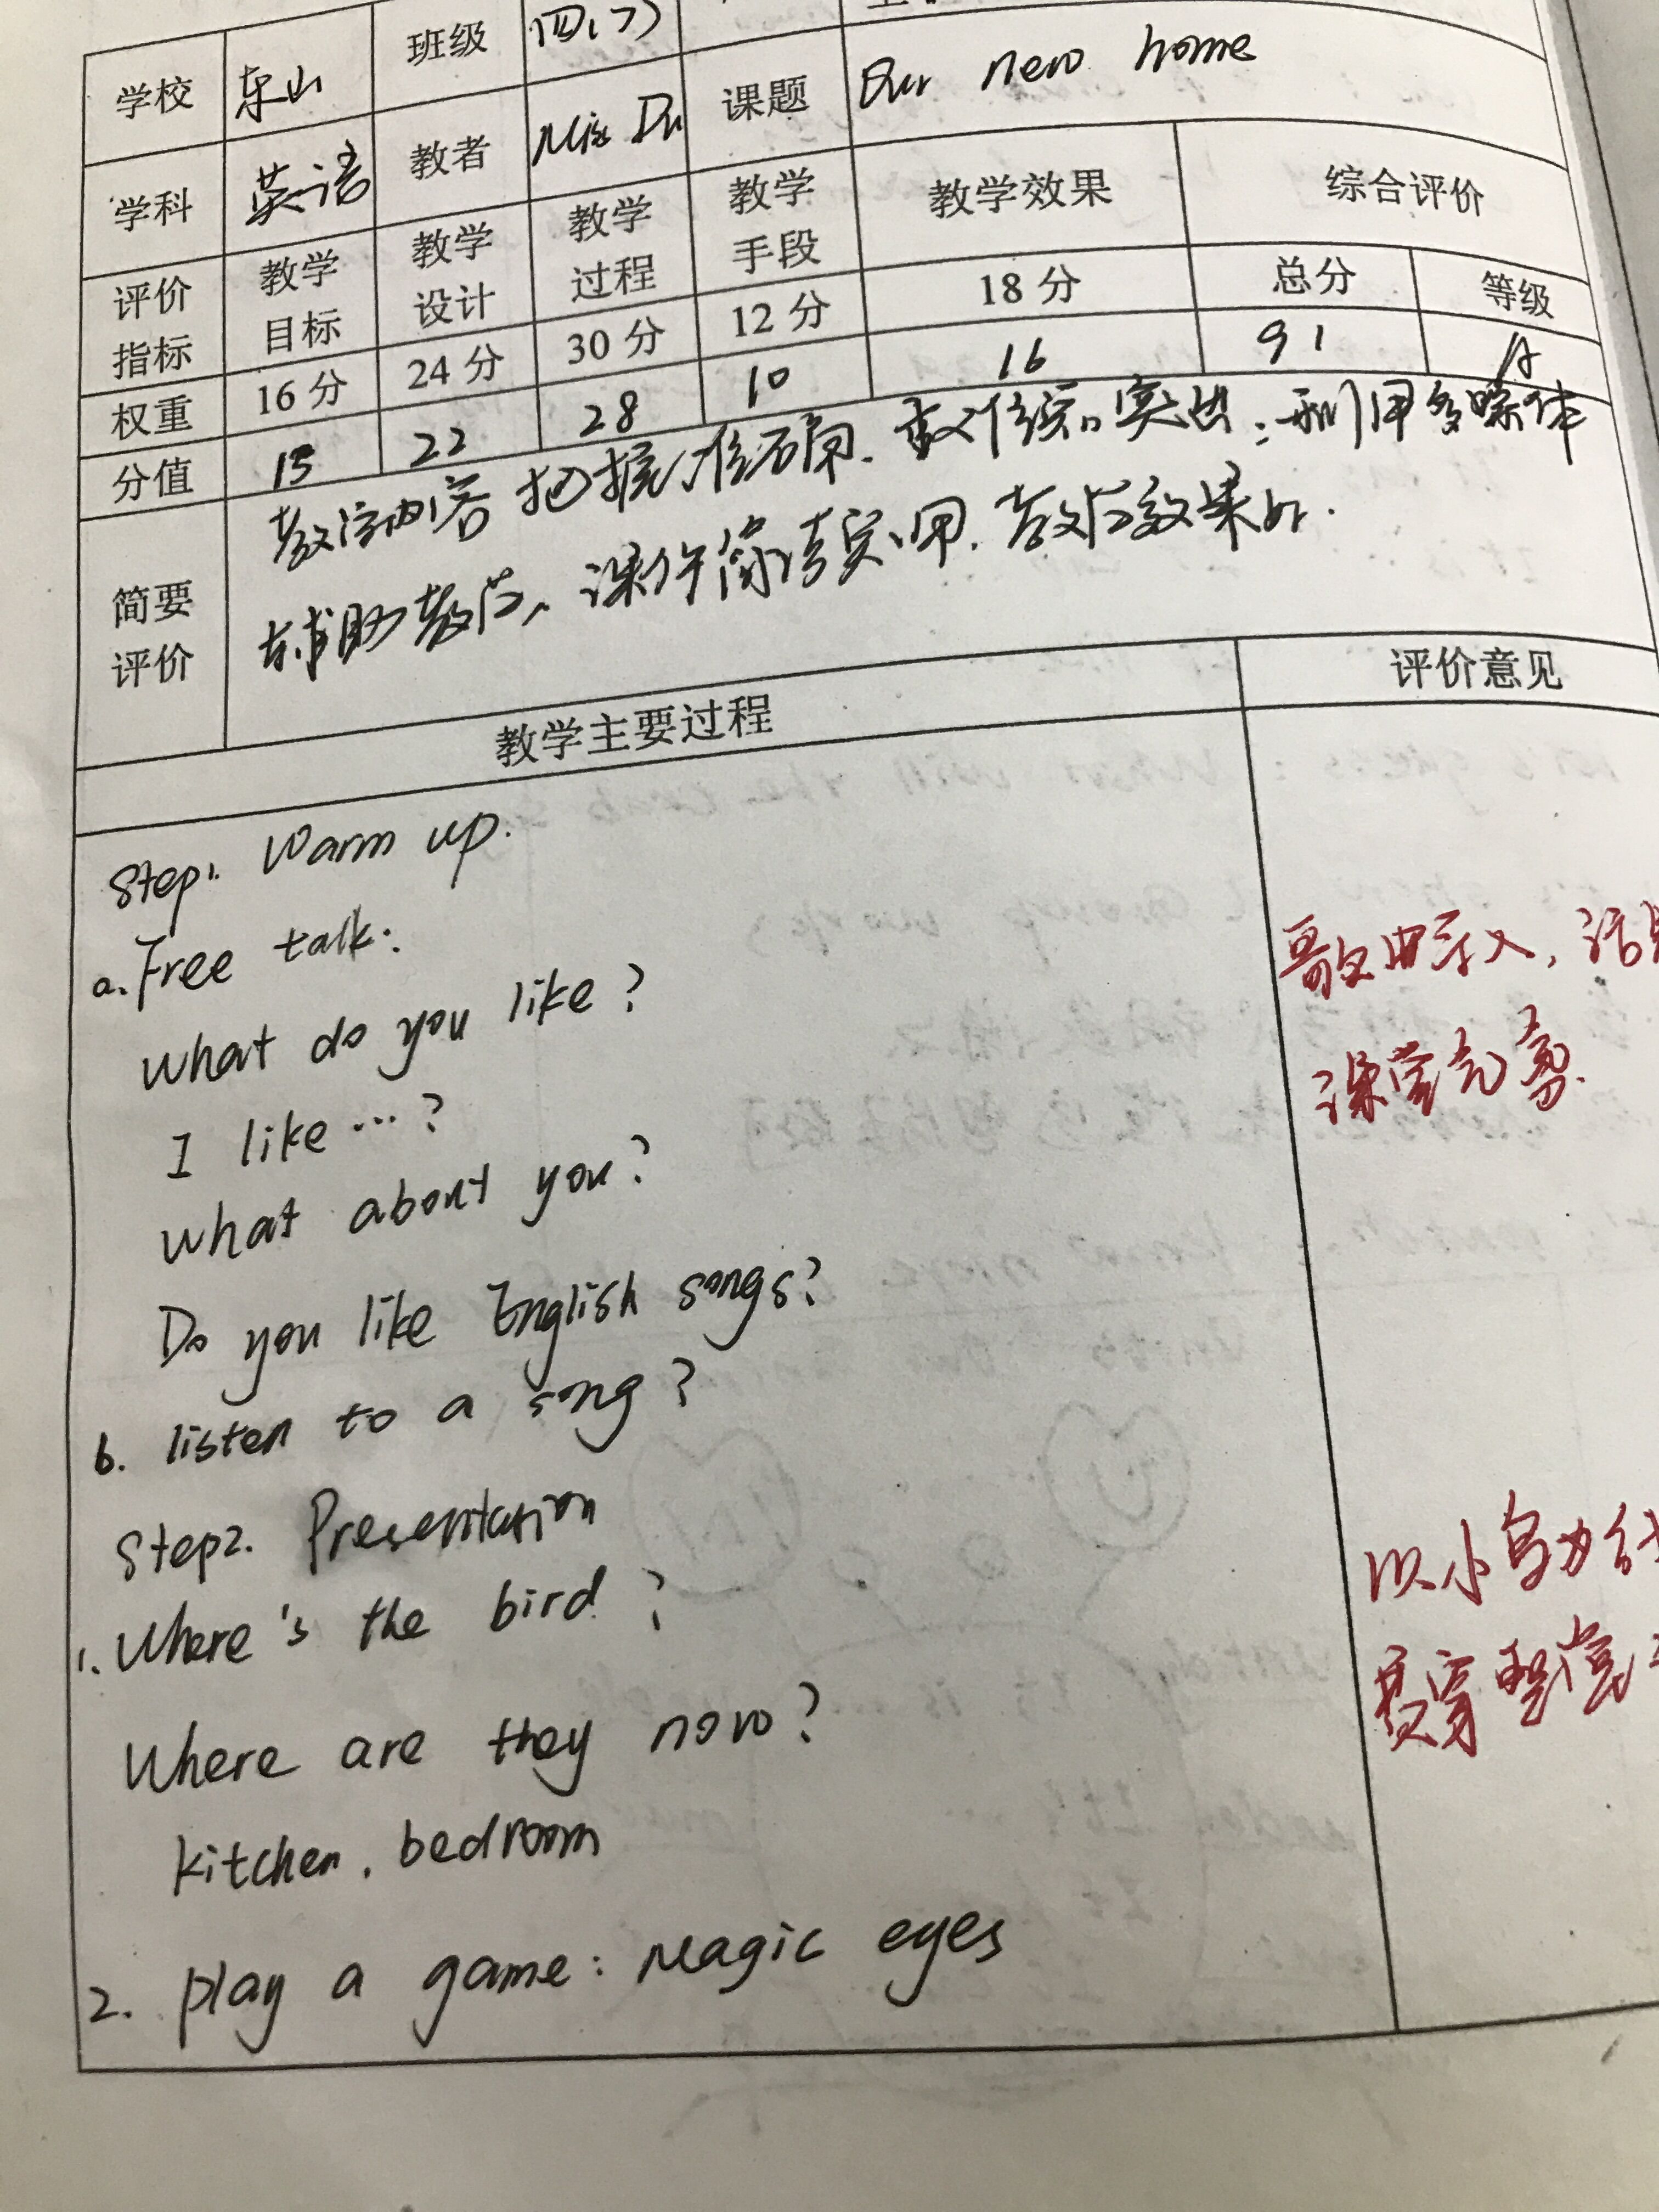 学校 东山 班级 四(7)
学科 英语 教者 Miss Du 课题 Our new home
评价指标 教学目标 教学设计 教学过程 教学手段 教学效果 综合评价
权重 16分 24分 30分 12分 18分 总分 等级
分值 15 22 28 10 16 91 A
简要评价
教学内容把握准确,重难点突出;利用多媒体
辅助教学,课件简洁实用,教学效果好.
教学主要过程 评价意见
Step1. Warm up.
a. Free talk:
歌曲导入,活
What do you like?
课堂气氛.
I like…?
What about you?
Do you like English songs?
b. listen to a song?
Step2. Presentation
以小鸟为
1. Where's the bird?
贯穿整堂
Where are they now?
kitchen. bedroom
2. play a game: Magic eyes